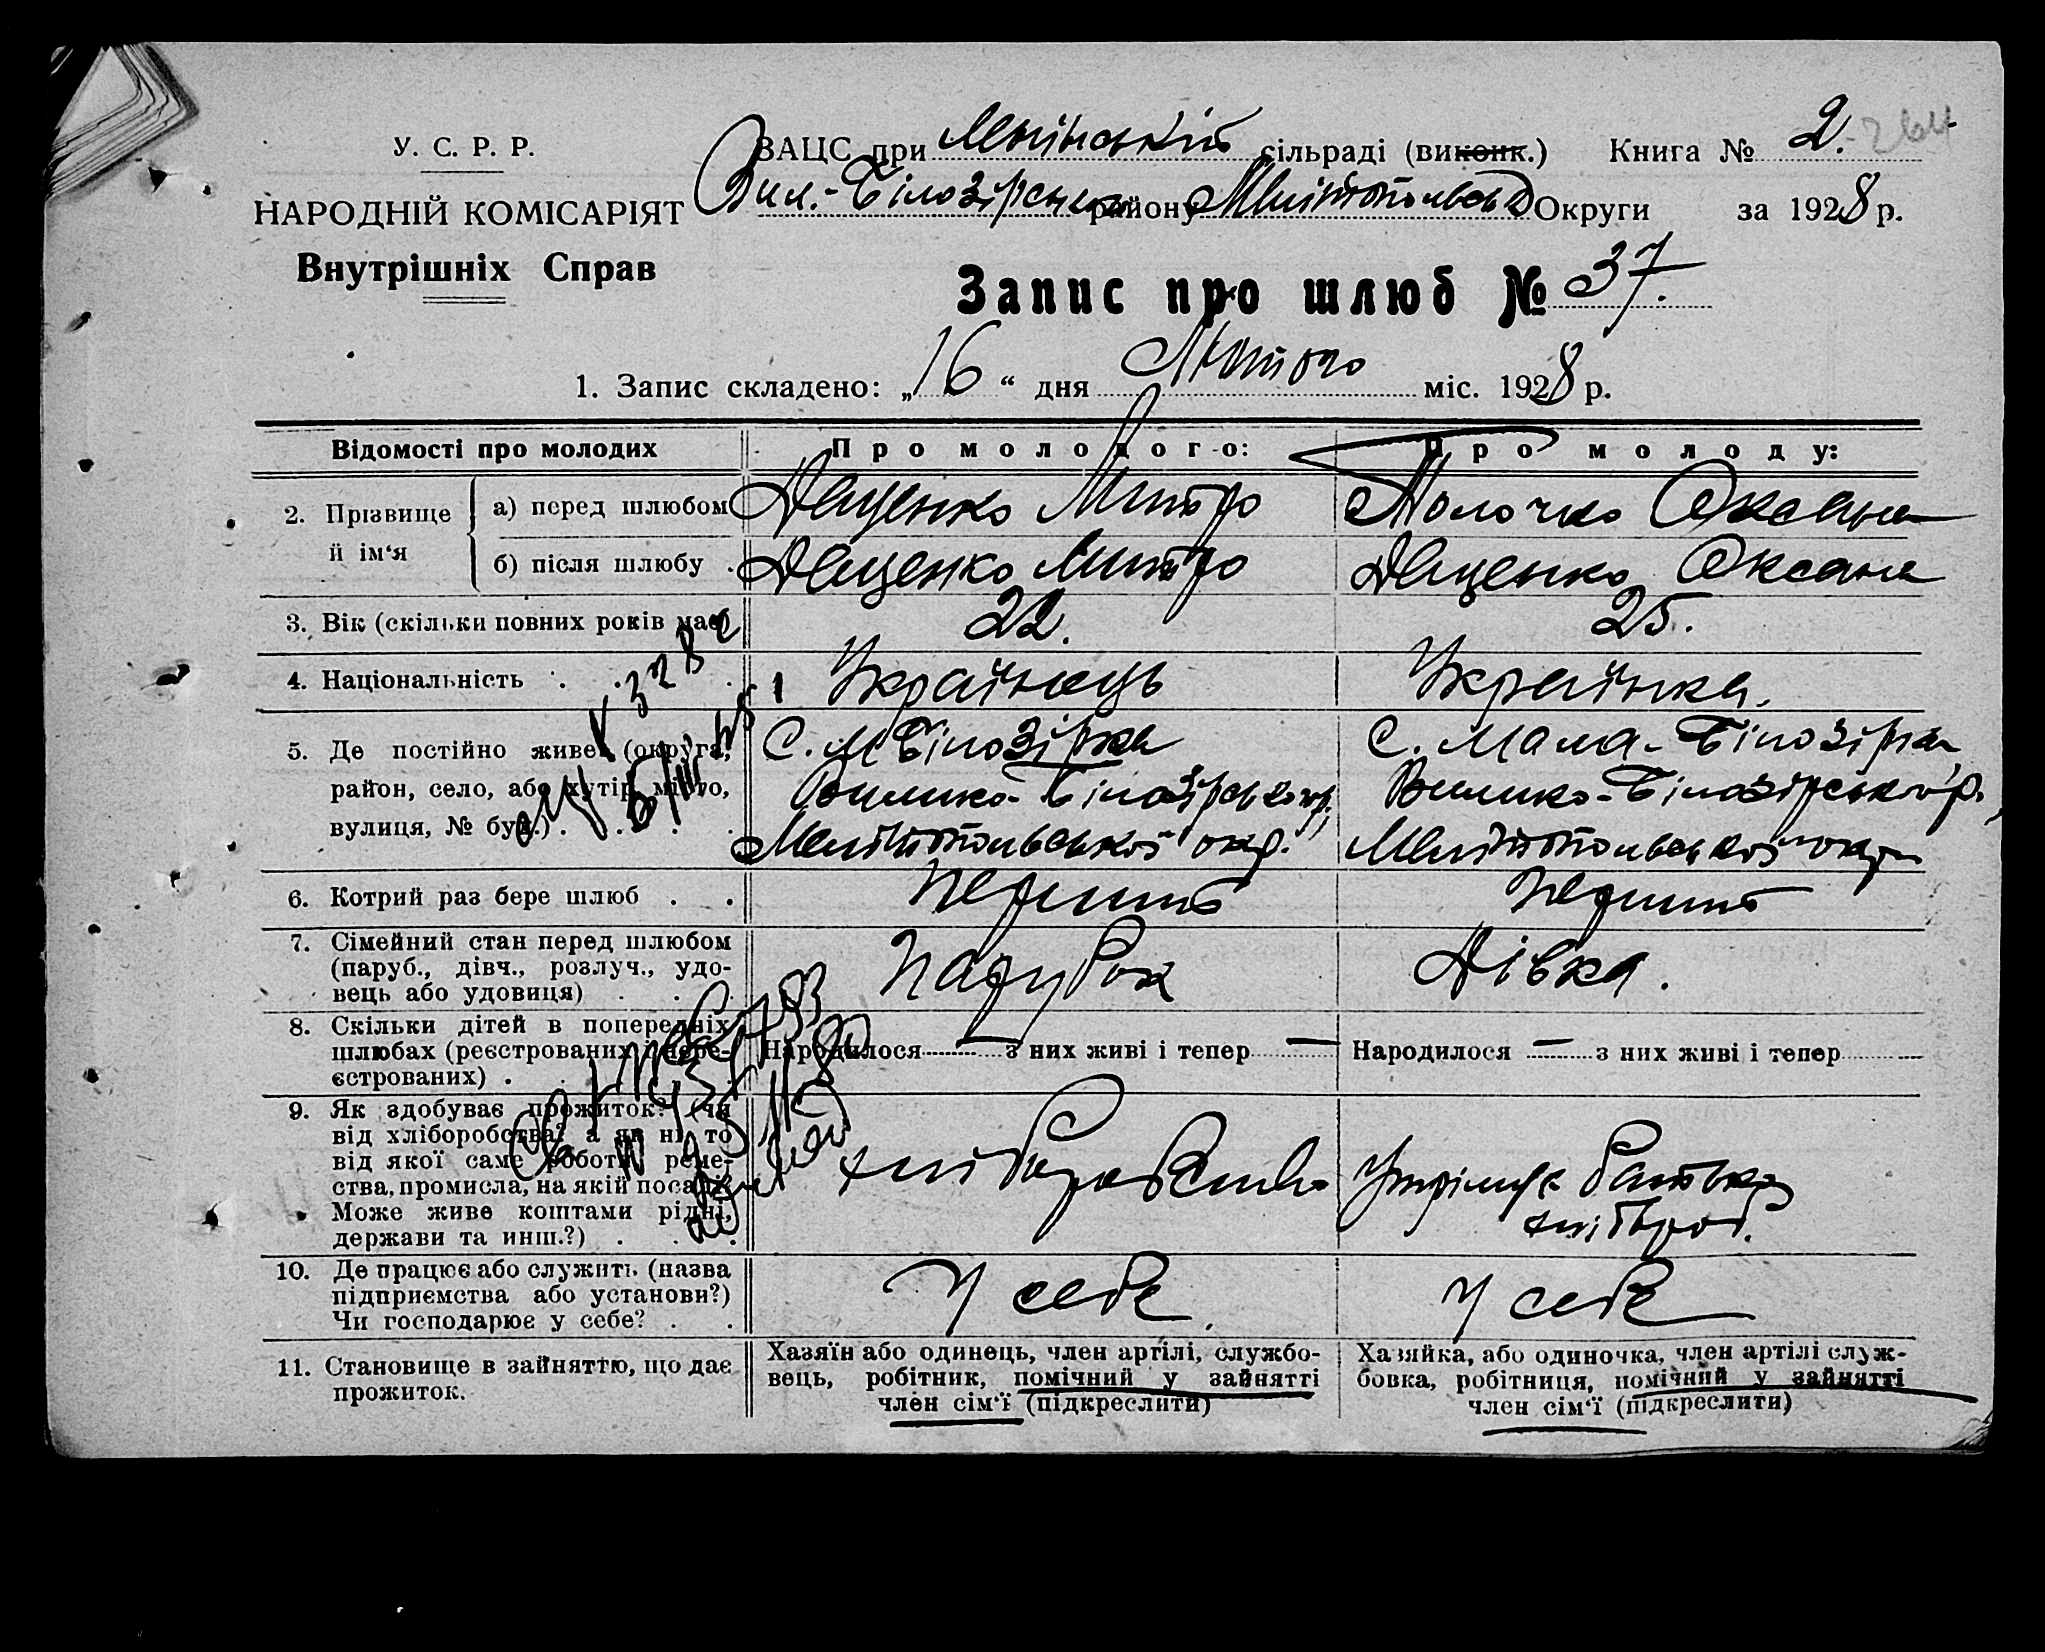 У. С. Р. Р.
НАРОДНІЙ КОМІСАРІЯТ
Внутрішніх Справ
ЗАЦС при сільраді (виконк.) Книга № 2.
Вил.-Білозірськ району Мелітопольськ Округи за 1928 р.
Запис про шлюб № 37.
1. Запис складено: „16“ дня Лютого міс. 1928 р.
Відомості про молодих
Про молодого:
Про молоду:
2. Прізвище й ім‘я
а) перед шлюбом
Дяценко Митро
Молочко Оксана
б) після шлюбу .
Дяценко Митро
Дяценко Оксана
3. Вік (скільки повних років має)
22.
25.
4. Національність . . .
Українець
Українка.
5. Де постійно живе (округа,
район, село, або хутір, місто,
вулиця, № буд.) . . . .
С. М Білозірка
Велико-Білозірського р.,
Мелітопольської окр.
С. Мала-Білозірка,
Велико-Білозірського р.,
Мелітопольської окр.
6. Котрий раз бере шлюб . .
Перший
Перший
7. Сімейний стан перед шлюбом
(паруб., дівч., розлуч., удо-
вець або удовиця) . . .
Парубок
Дівка.
8. Скільки дітей в попередніх
шлюбах (реєстрованих і нере-
єстрованих) .
Народилося — з них живі і тепер —
Народилося — з них живі і тепер —
9. Як здобуває прожиток? (чи
від хліборобства? а як ні, то
від якої саме роботи, реме-
ства, промисла, на якій посаді?
Може живе коштами рідні,
держави та инш.?) . . .
хліборобство
батька
хлібороб.
10. Де працює або служить (назва
підприємства або установи?)
Чи господарює у себе? . .
У себе.
У себе
11. Становище в зайняттю, що дає
прожиток.
Хазяїн або одинець, член артілі, службо-
вець, робітник, помічний у зайнятті
член сім‘ї (підкреслити)
Хазяйка, або одиночка, член артілі служ-
бовка, робітниця, помічний у зайнятті
член сім‘ї (підкреслити)